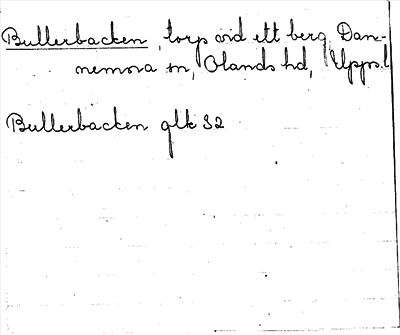 Bullerbacken, torp vid ett berg, Dan-
nemora sn, Olands hd, Upps.l
Bullerbacken glk 32